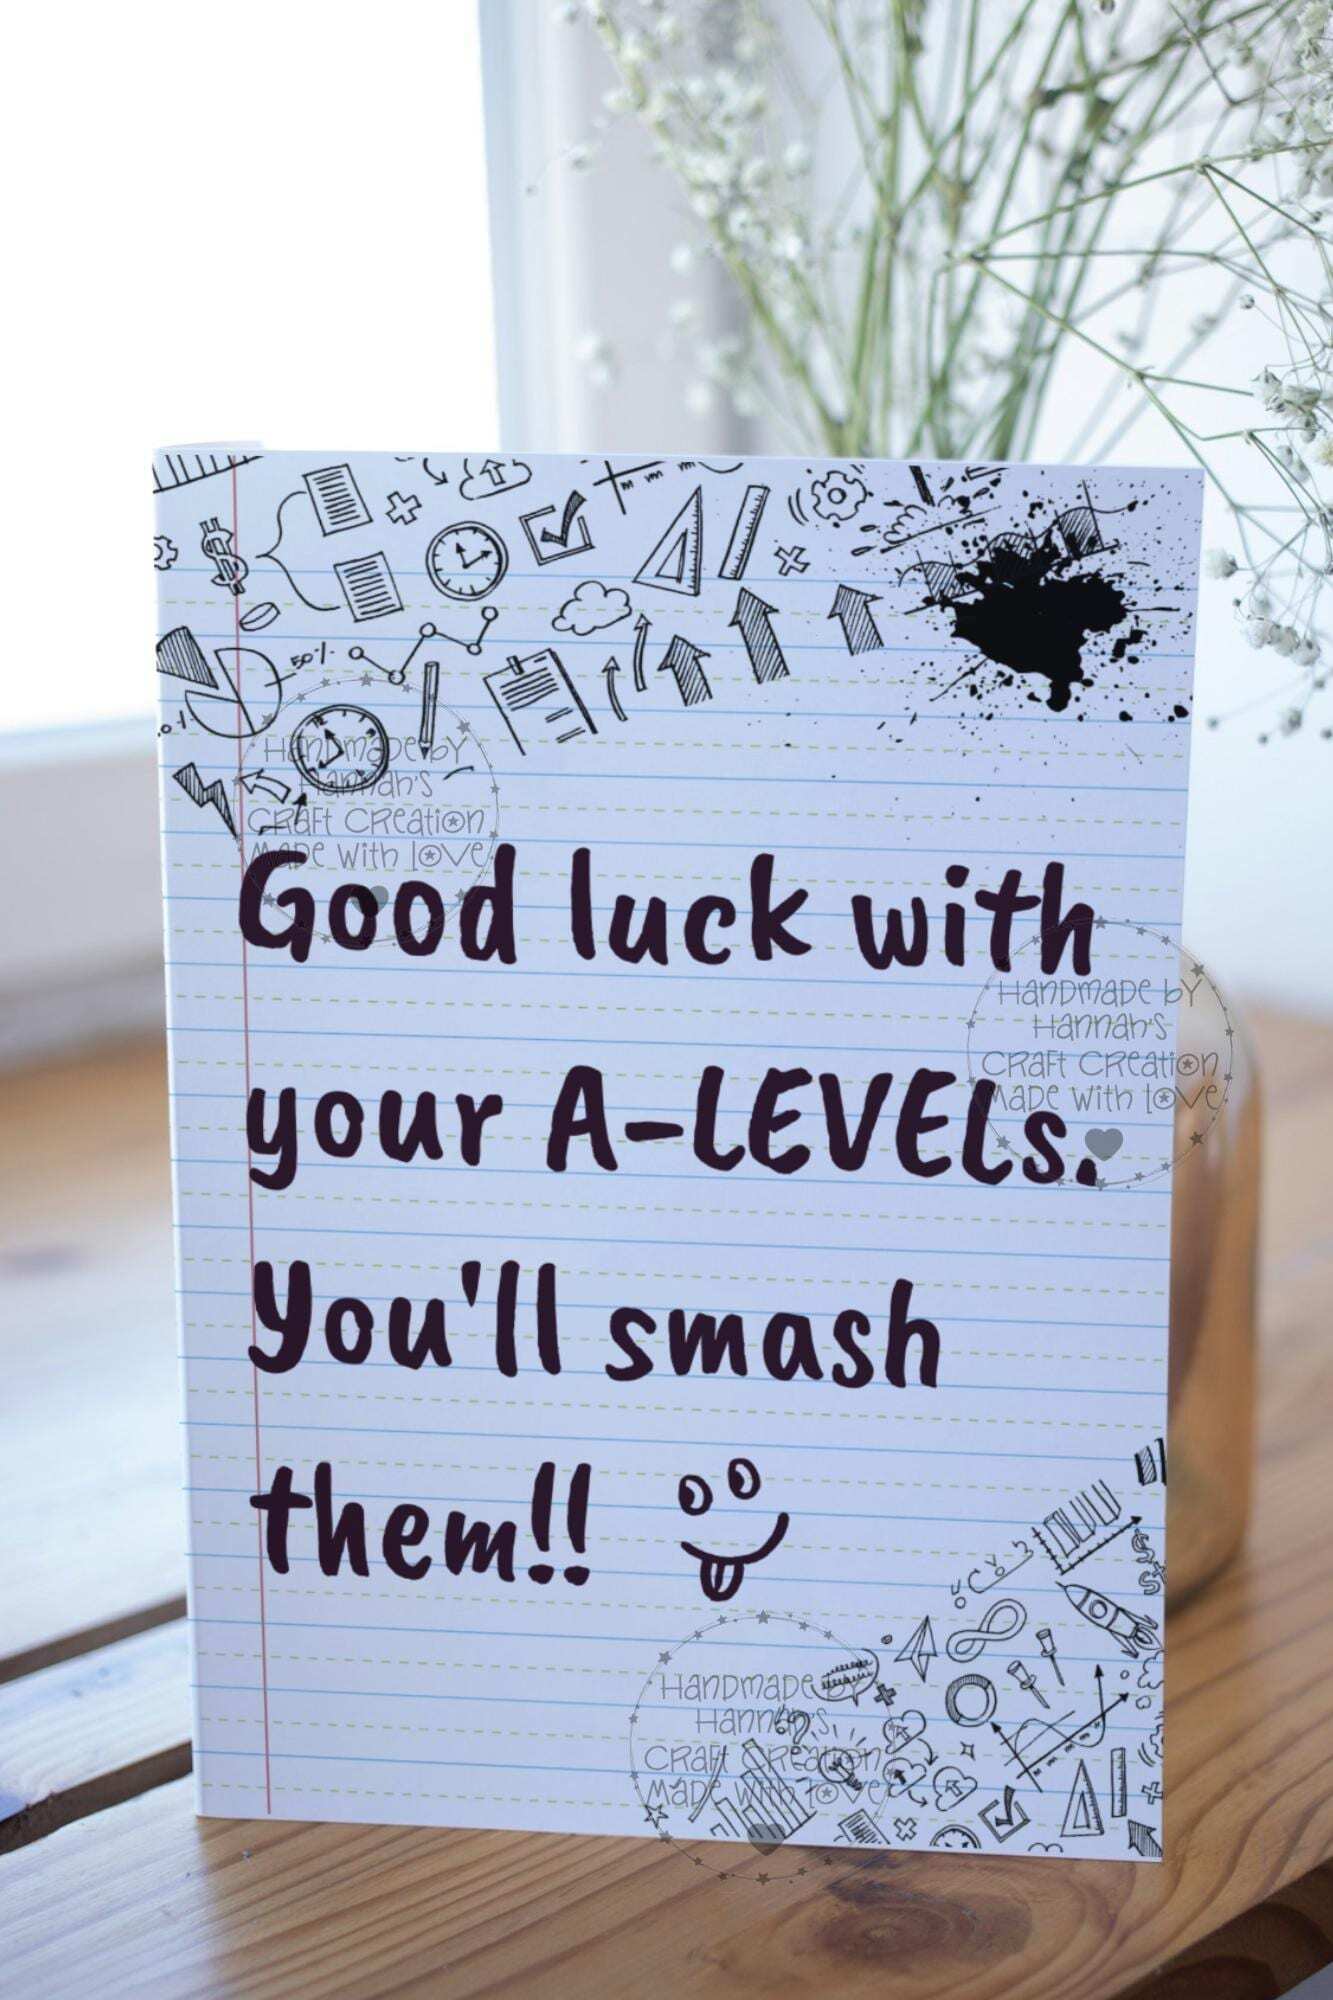 50%
Handmade by
Hannah's
Craft Creation
Made with love
Good luck with
your A-LEVELs.
You'll smash
them!!
Handmade by
Hannah's
Craft Creation
Made with love
Handmade by
Hannah's
Craft Creation
Made with love